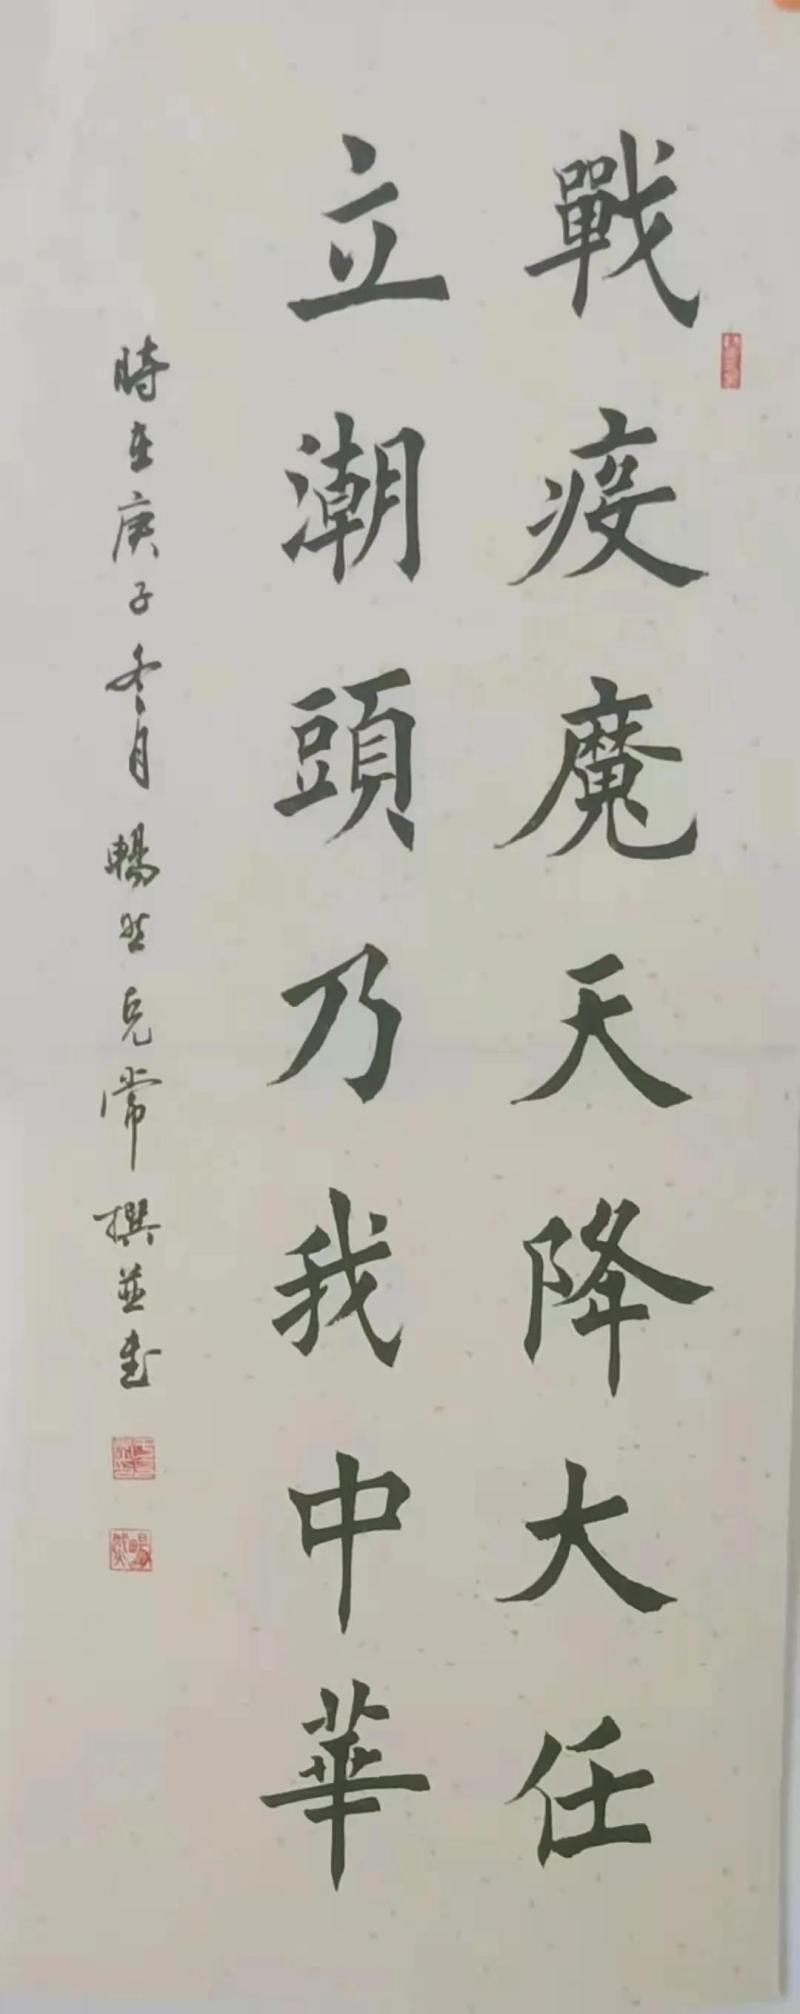 戰疫魔天降大任
立潮頭乃我中華
時在庚子冬月暢然克常撰並書